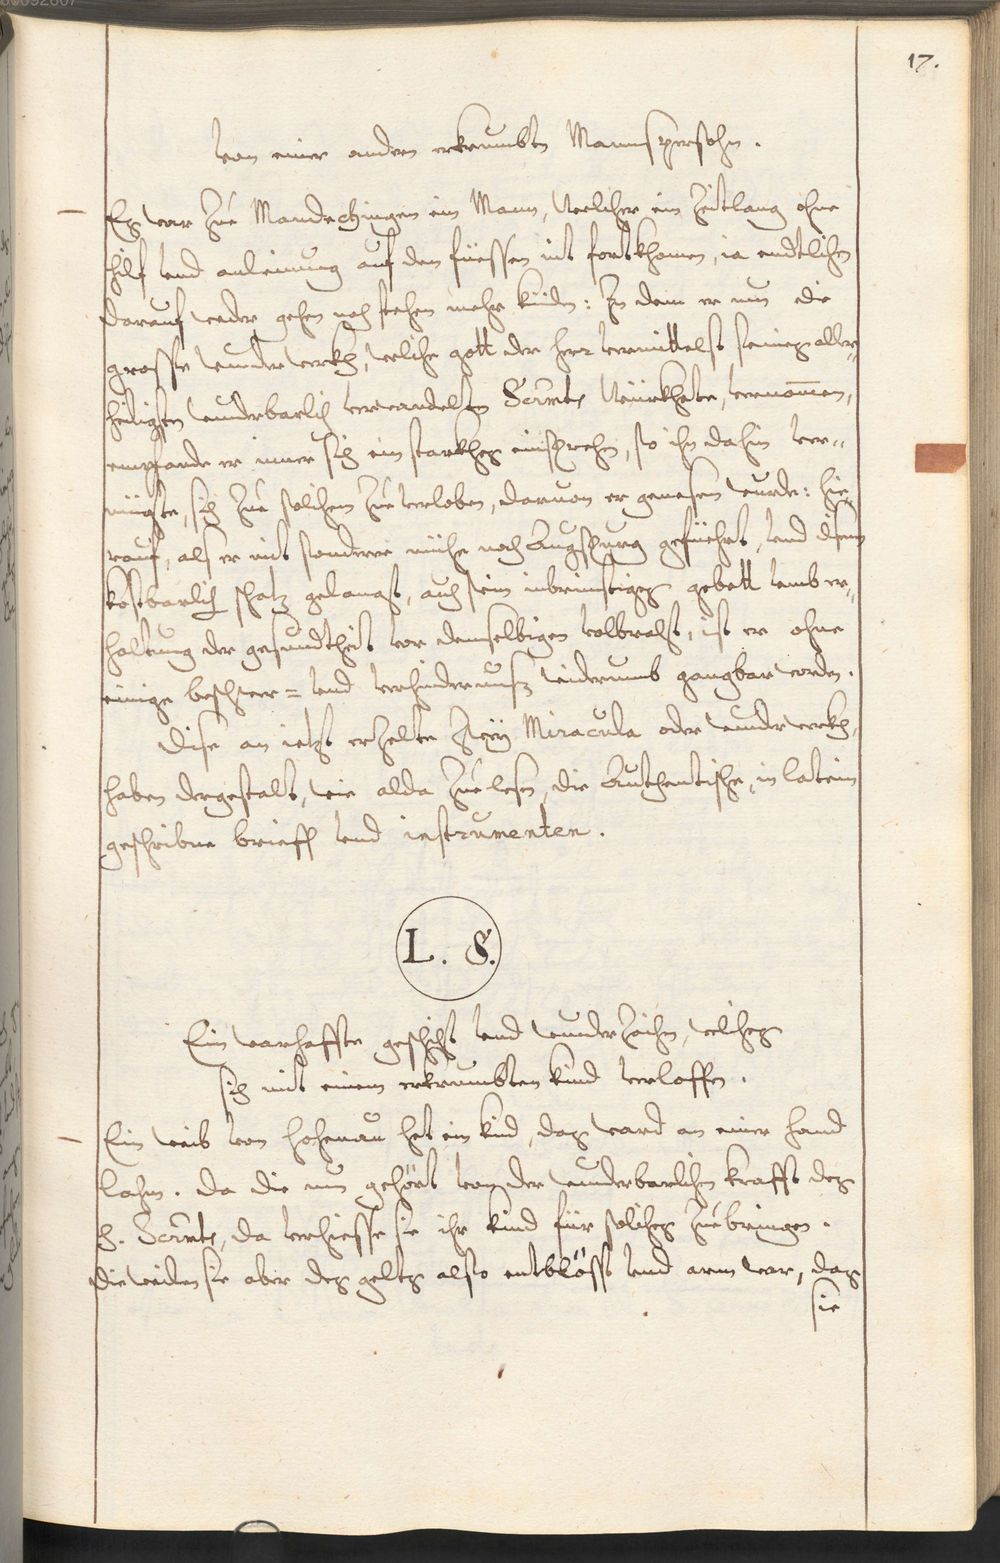 17.
Von einer andern erkrumbten Mannspersohn.
Es war zue Mandechingen ein Mann, welicher ein Zeitlang ohne
hilf vnd anleinung auf den füessen nit fortkhomen, ia endtlichen
darauf weder gehen noch stehen mehr künden: In dem er nun die
grosse wunderwerkh, weliche gott der herr vermittelst seines aller¬
heiligsten wunderbarlich verwandelten Sacrments würkhete, vernommen,
empfande er inner sich ein starkhes einsprechen, so ihn dahin ver¬
mögte, sich zue solichem zue verloben, daruon er genesen wurde: hie¬
rauf, als er mit sonderer mühe nach Augspurg gefüehrt, vnd disem
kostbarlich schatz gelangt, auch sein inbrünstiges gebett vmb er¬
haltung der gesundtheit vor demselbigen volbracht, ist er ohne
einige beschwer= vnd verhindernus widerumb gangbar worden.
Dise an ietzt erzelte zwey Miracula oder wunderwerkh,
haben dergestalt, wie alda zue lesen, die Authentische, in latein
geschribne brieff vnd instrumenten.
L. S.
Ein warhaffte geschicht vnd wunderzeichen, weliches
sich mit einem erkrumbten kind verloffen.
Ein weib von hohenau het ein kind, das ward an einer hand
lahm. Da die nun gehört von der wunderbarlichen krafft des
h. Sacrments, da verhiesse sie ihr kind für soliches zue bringen.
Die weilen sie aber des gelts also entblösst vnd arm war, das
sie